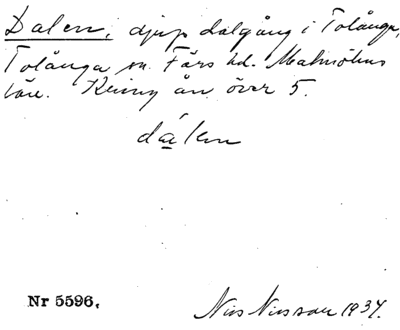 Dalen, djup dalgång i Tolånga,
Tolånga sn. Färs hd. Malmöhus
län. över 5.
dalen
Nr 5596.
Nils Nilsson 1934.